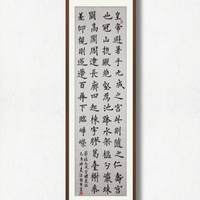 皇帝避暑乎九成之宮此則隨之仁壽宮
也冠山抗殿絕壑為池跨水架楹分巖竦
闕高閣周建長廊四起棟宇膠葛臺榭參
差仰視則迢遞百尋下臨崢嶸